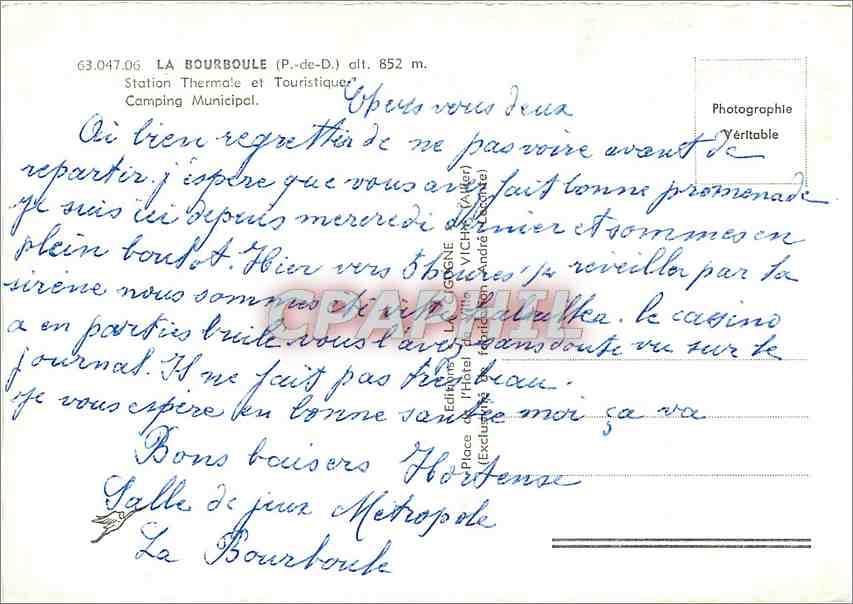 63.047.06 LA BOURBOULE (P.-de-D.) alt. 852 m.
Station Thermale et Touristique
Camping Municipal.
Photographie
Véritable
vous deux
bien regrettir de ne pas voire avant de
repartir. j'espère que vous avez fait bonne promenade
je suis ici depuis mercredi dernier et sommes en
plein boulot. Hier vers 5 heures reveiller par la
sirène nous sommes été vite le casino
a en parties brulé vous l'avez sans doute vu sur le
journal. Il ne fait pas très beau.
je vous espère en bonne santée moi ça va
Bons baisers Hortense
Salle de jeux Métropole
La Bourboule
Editions LA CIGOGNE
Place de l'Hôtel de Ville VICHY (Allier)
(Exclusivité de fabrication André Leconte)
CPAPHIL